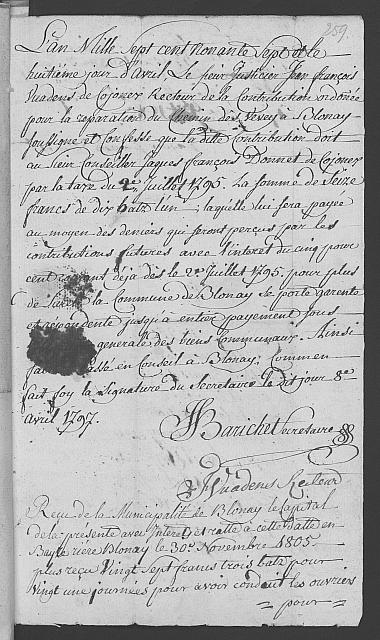 259.
L'an Mille Sept cent Nonante Sept et le
huitième jour d'Avril, Le sieur Justicier Jean François
Vuadens de Recteur de la Contribution ordonée
pour la reparation du Chemin des à Blonay
Soussigne et Confesse que la dite Contribution doit
au sieur Conseiller Jaques François Bonnet de
par la taxe du 2e Juillet 1795. La somme de Seize
francs de dix batz l'un, laquelle lui sera payée
au moyen des deniers qui seront perçus par les
contributions futures avec l'interet du cinq pour
cent courant déja dès le 2e Juillet 1795. pour plus
de la Commune de Blonay Se porte garente
et repondente jusqu'à entier payement sous
generale des biens Communaux. Ainsi
passé en Conseil à Blonay, Comm'en
fait foy la Signature du Secretaire le dit jour 8e
avril 1797.
Secretaire
Vuadens Recteur
Reçu de la Municipalité de Blonay le Capital
de la présente avec Interet et ratte à cette datte en
Blonay le 30e Novembre 1805.
plus reçu Vingt Sept francs trois batz pour
Vingt une journées pour avoir conduit les ouvriers
= pour =